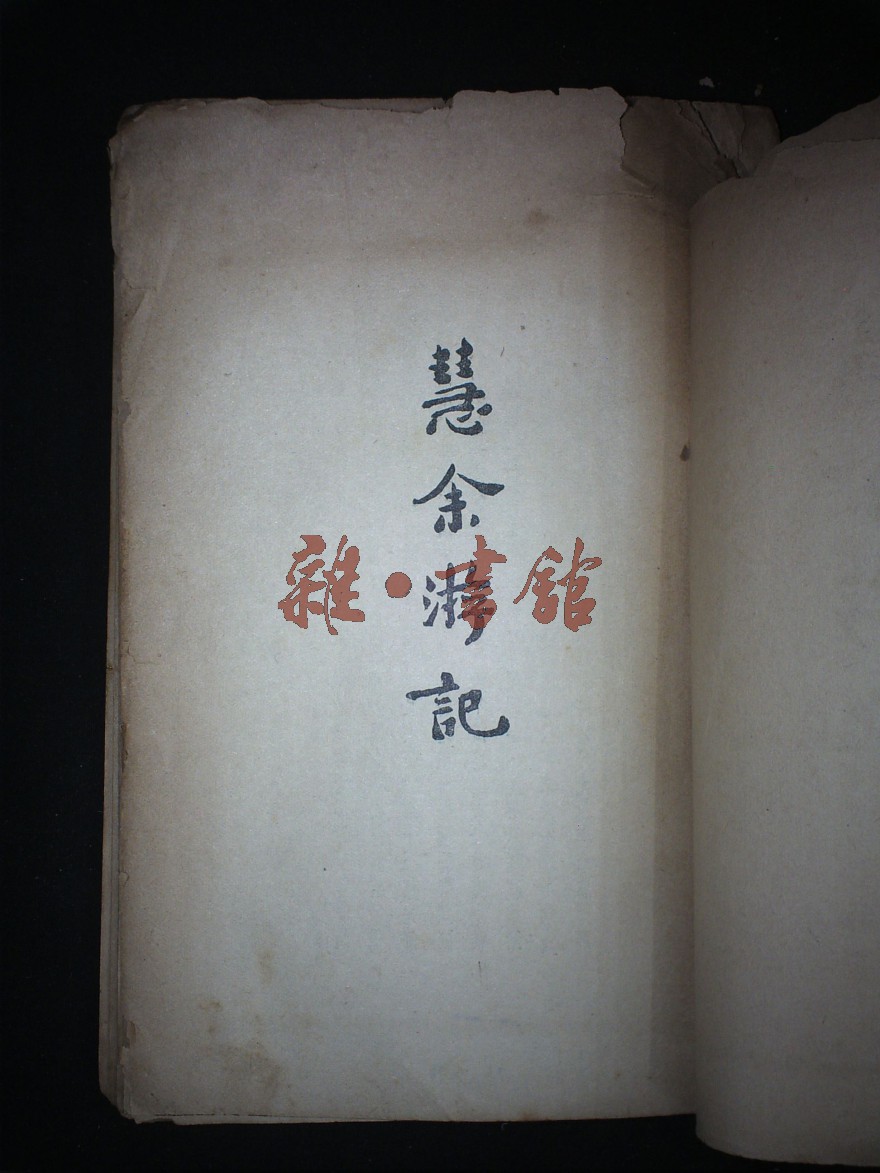 慧余游記
雜·書館